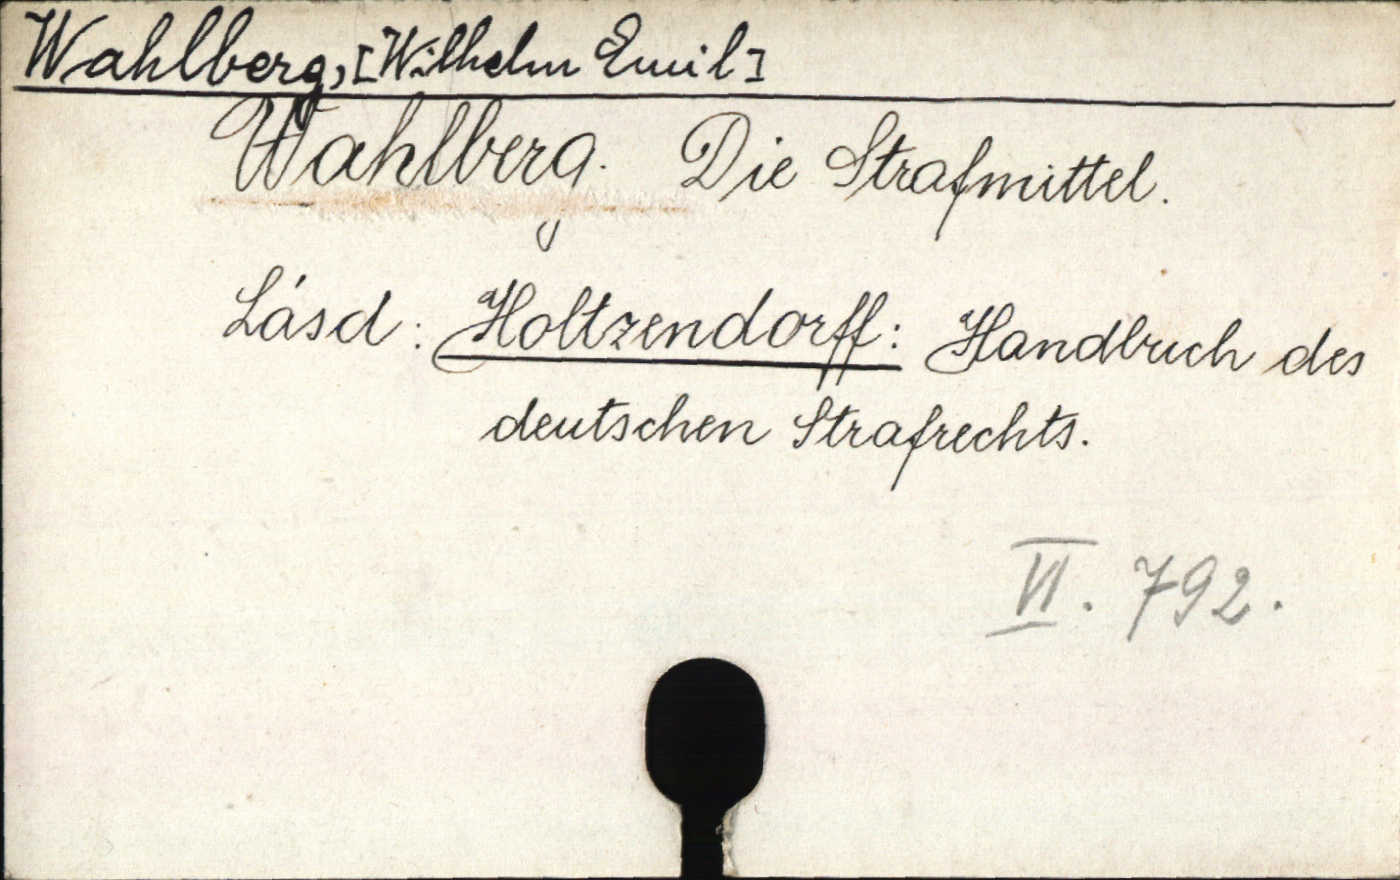 Wahlberg, [Wilhelm Emil]
Wahlberg. Die Strafmittel.
Lásd: Holtzendorff: Handbuch des
deutschen Strafrechts.
VI. 792.